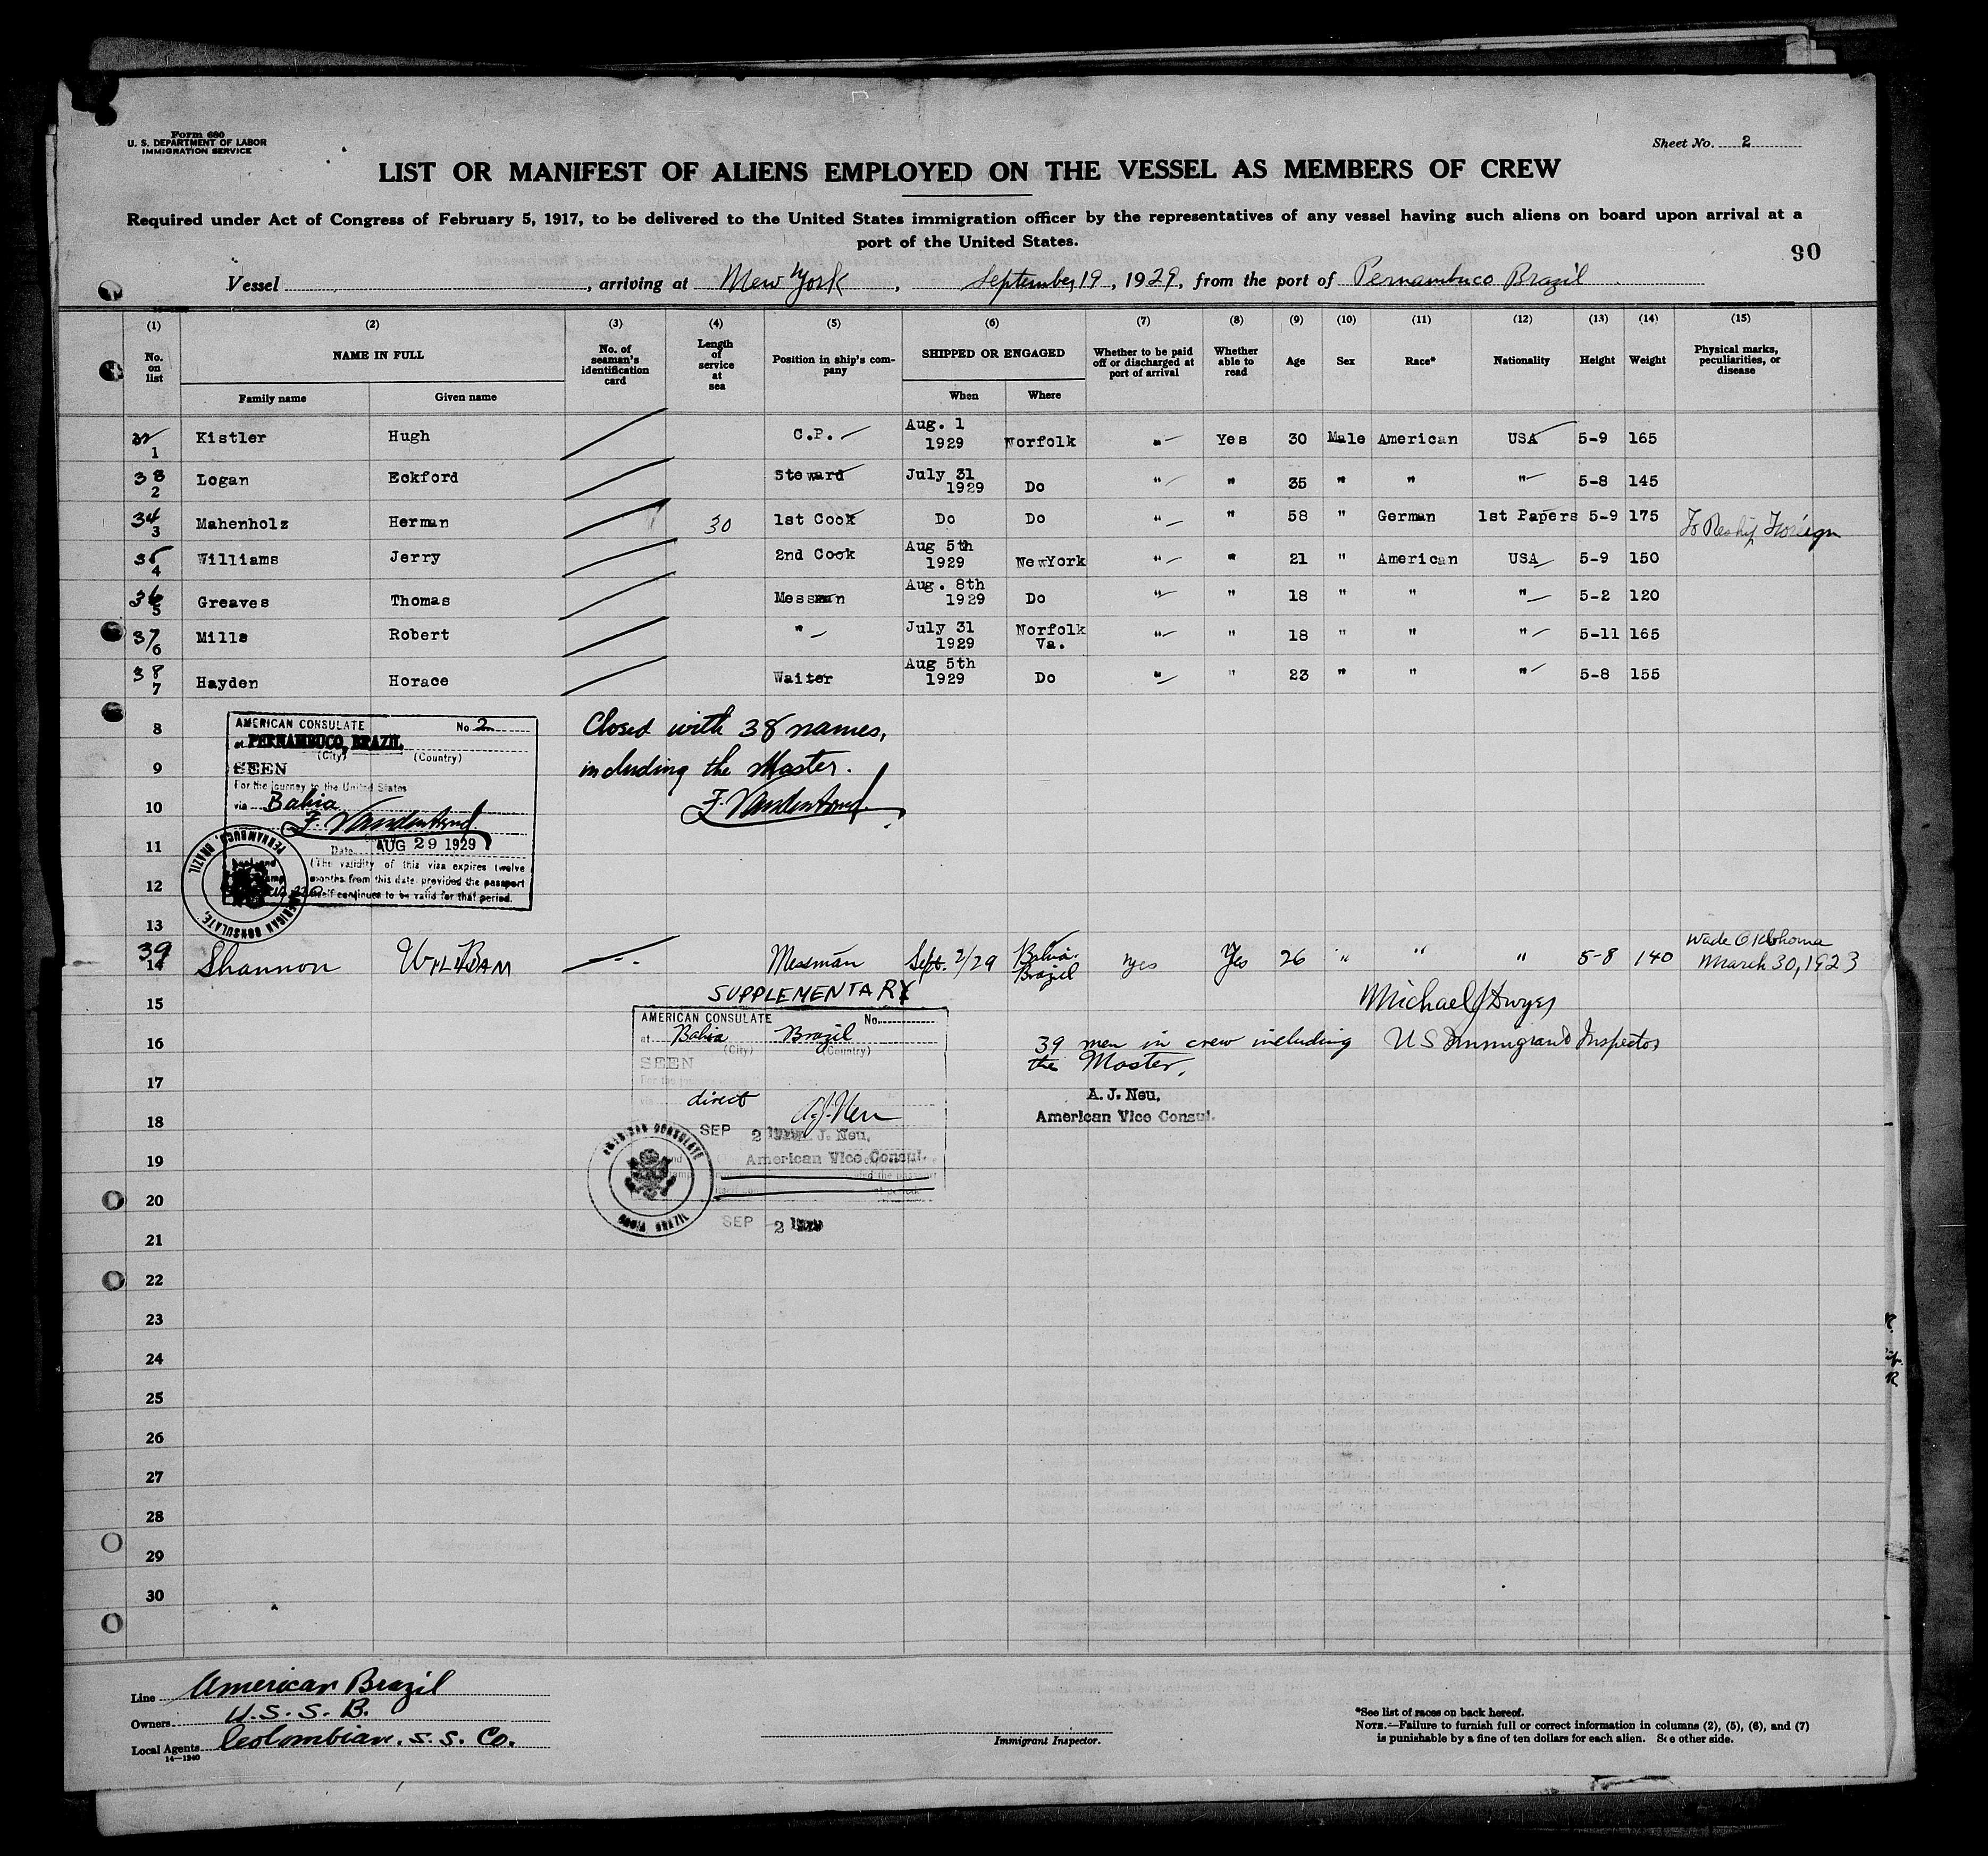 Form 680
U. S. DEPARTMENT OF LABOR
IMMIGRATION SERVICE
Sheet No. 2
LIST OR MANIFEST OF ALIENS EMPLOYED ON THE VESSEL AS MEMBERS OF CREW
Required under Act of Congress of February 5, 1917, to be delivered to the United States immigration officer by the representatives of any vessel having such aliens on board upon arrival at a
port of the United States.
90
Vessel , arriving at New York , September 19 , 1929, from the port of Pernambuco Brazil
(1) (2) (3) (4) (5) (6) (7) (8) (9) (10) (11) (12) (13) (14) (15)
No. on list NAME IN FULL No. of seaman's identification card Length of service at sea Position in ship's company SHIPPED OR ENGAGED Whether to be paid off or discharged at port of arrival Whether able to read Age Sex Race* Nationality Height Weight Physical marks, peculiarities, or disease
Family name Given name When Where
1 Kistler Hugh C.P. Aug. 1 1929 Norfolk " Yes 30 Male American USA 5-9 165
38 2 Logan Eckford Steward July 31 1929 Do " " 35 " " " 5-8 145
34 3 Mahenholz Herman 30 1st Cook Do Do " " 58 " German 1st Papers 5-9 175 To Reship Foreign
35 4 Williams Jerry 2nd Cook Aug 5th 1929 NewYork " " 21 " American USA 5-9 150
36 5 Greaves Thomas Messman Aug. 8th 1929 Do " " 18 " " " 5-2 120
37 6 Mills Robert " July 31 1929 Norfolk Va. " " 18 " " " 5-11 165
38 7 Hayden Horace Waiter Aug 5th 1929 Do " " 23 " " " 5-8 155
8 AMERICAN CONSULATE No 2 Closed with 38 names,
at PERNAMBUCO, BRAZIL
(City) (Country)
9 SEEN including the Master.
For the journey to the United States
10 via Bahia
11 Date AUG 29 1929
(The validity of this visa expires twelve
12 months from this date provided the passport
itself continues to be valid for that period.
AMERICAN CONSULATE, PERNAMBUCO, BRAZIL
13
39 14 Shannon William Messman Sept. 2/29 Bahia Brazil yes Yes 26 " " " 5-8 140 Wade Oklahoma March 30, 1923
15 SUPPLEMENTARY Michael J Dwyer
AMERICAN CONSULATE No.
at Bahia Brazil
(City) (Country)
16 39 men in crew including US Immigrant Inspector
the Master.
SEEN
17 direct A. J. Neu A. J. Neu,
18 American Vice Consul.
SEP 2 A. J. Neu,
19 American Vice Consul.
AMERICAN CONSULATE BAHIA BRAZIL
20
SEP 2
21
22
23
24
25
26
27
28
29
30
Line American Brazil
Owners U.S.S.B.
Local Agents Colombian. S.S. Co.
14—1240
Immigrant Inspector.
*See list of races on back hereof.
NOTE.—Failure to furnish full or correct information in columns (2), (5), (6), and (7)
is punishable by a fine of ten dollars for each alien. See other side.